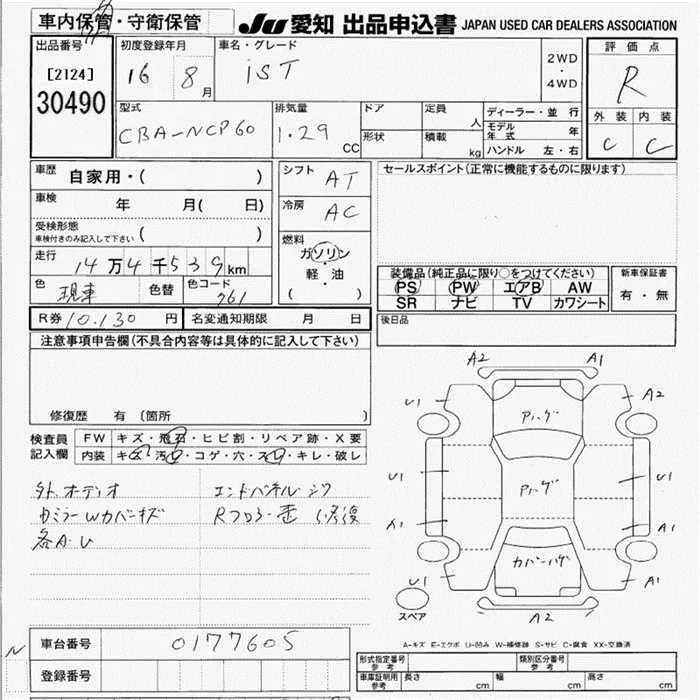 車内保管・守衛保管
JU 愛知 出品申込書 JAPAN USED CAR DEALERS ASSOCIATION
出品番号
[2124]
30490
初度登録年月
16 8 月
車名・グレード
iST
2WD
・
4WD
評価点
R
外装 内装
C C
型式
CBA-NCP60
排気量
1.29 CC
ドア
形状
定員 人
積載 kg
ディーラー・並 行
モデル年式 年
ハンドル 左・右
車歴
自家用・( )
車検 年 月( 日)
受検形態
車検付きのみ記入して下さい ( )
走行
14万4千539km
色 現車 色替 色コード 761
シフト AT
冷房 AC
燃料
ガソリン
・
軽・油
( )
セールスポイント(正常に機能するものに限ります)
装備品(純正品に限り○をつけてください)
PS PW エアB AW
SR ナビ TV カワシート
新車保証書
有・無
R券 10.130 円 名変通知期限 月 日
後日品
注意事項申告欄(不具合内容等は具体的に記入して下さい)
修復歴 有 〔箇所 〕
検査員
記入欄
FW キズ・飛石・ヒビ割・リペア跡・X要
内装 キズ・汚レ・コゲ・穴・スレ・キレ・破レ
外.オーディオ
カミラーWカバーキズ
各A.U
エンドパネルシワ
Rフロアー歪 修復
A2 A1
U1 A2
アハゲ
U1 U1
アハゲ
A1 A1
カバーハゲ
U1 A1
スペア
A2
A-キズ E-エクボ U-凹み W-補修跡 S-サビ C-腐食 XX-交換済
車台番号 0177605
N
登録番号
形式指定番号
参考
類別区分番号
参考
車庫証明用
参考
長さ cm 幅 cm 高さ cm